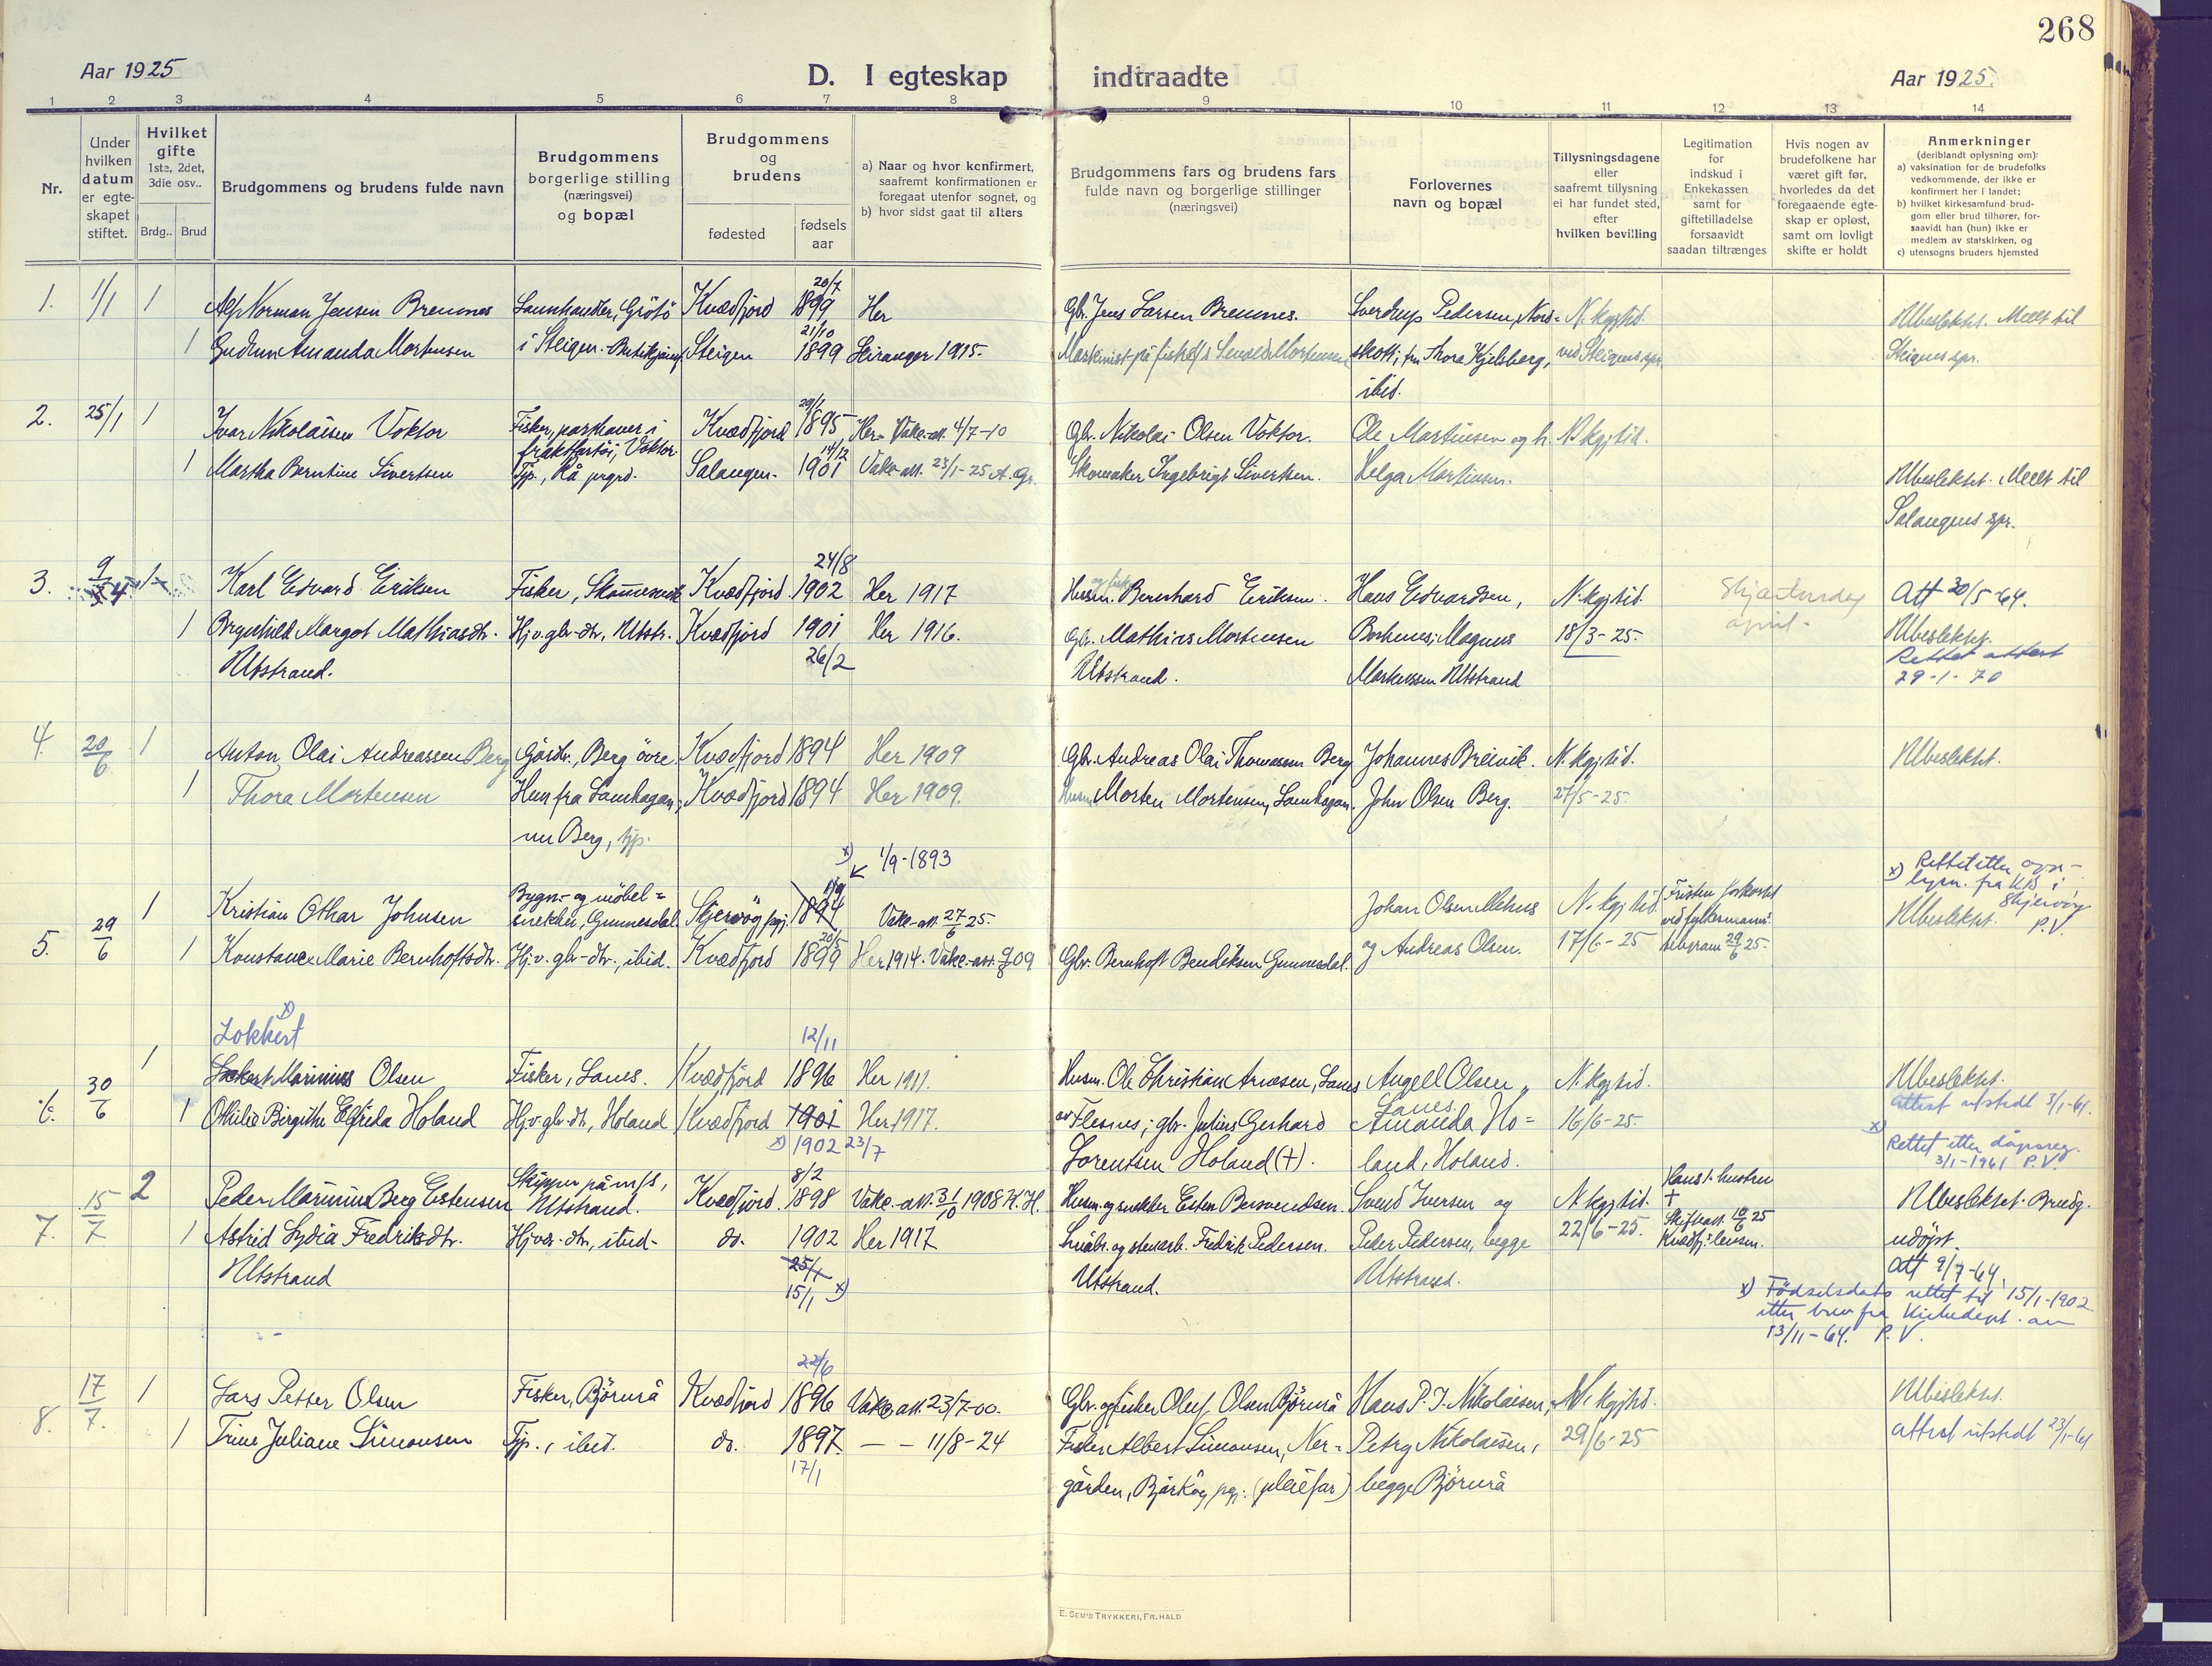 268
Aar 1925
D. I egteskap indtraadte
Aar 1925.
1 2 3 4 5 6 7 8 9 10 11 12 13 14
Nr.
Under hvilken datum er egteskapet stiftet.
Hvilket gifte
1ste, 2det, 3die osv..
Brdg.. Brud
Brudgommens og brudens fulde navn
Brudgommens borgerlige stilling (næringsvei) og bopæl
Brudgommens og brudens
fødested
fødsels aar
a) Naar og hvor konfirmert, saafremt konfirmationen er foregaat utenfor sognet, og
b) hvor sidst gaat til alters
Brudgommens fars og brudens fars fulde navn og borgerlige stillinger (næringsvei)
Forlovernes navn og bopæl
Tillysningsdagene eller saafremt tillysning ei har fundet sted, efter hvilken bevilling
Legitimation for indskud i Enkekassen samt for giftetilladelse forsaavidt saadan tiltrænges
Hvis nogen av brudefolkene har været gift før, hvorledes da det foregaaende egteskap er opløst, samt om lovligt skifte er holdt
Anmerkninger
(deriblandt oplysning om):
a) vaksination for de brudefolks vedkommende, der ikke er konfirmert her i landet;
b) hvilket kirkesamfund brudgom eller brud tilhører, forsaavidt han (hun) ikke er medlem av statskirken, og
c) utensogns bruders hjemsted
20/7
1. 1/1 1 Alf Norman Jensen Bremnes Landhandler, Grötö Kvædfjord 1899 Her Gbr. Jens Larsen Bremnes. Sverdrup Pedersen, Nord= N. kgjtid. Ubeslektet. Meldt til
21/10
1 Gudrun Amanda Mortensen i Steigen. Steigen 1899 Leiranger 1915. skott; fru Thora Kjelsberg, ved Steigens spr. Steigens spr.
ibid.
29/1
2. 25/1 1 Ivar Nikolaisen Voktor Fisker, parthaver i Kvædfjord 1895 Her. Vakc.att. 4/7-10 Gbr. Nikolai Olsen Voktor. Ole Martinsen og h. N. kgjtid.
fraktfartöi, Voktor 14/12
1 Martha Berntine Sivertsen Tjp., Rå prgrd. Salangen. 1901 Vakc.att. 23/1-25 A. Gr. Skomaker Ingebrigt Sivertsen. Helga Martinsen. Ubeslektet. Meldt til
Salangens spr.
24/8
3. 9/4 1 Karl Edvard Eriksen Fisker, Kvædfjord 1902 Her 1917 Husm. Bernhard Eriksen. Hans Edvardsen, N. kgjtid. Skjærtorsdag Att 30/5-64.
april.
1 Brynhild Margot Mathiasdtr. Hj.v. gbr-dtr, Utstr. Kvædfjord 1901 Her 1916. Gbr. Mathias Mortensen Magnus 18/3-25. Ubeslektet.
Utstrand. 26/2 Utstrand. Utstrand Rettet attest
29-1-70
4. 20/6 1 Anton Olai Andreassen Berg Gårdbr., Berg övre. Kvædfjord 1894 Her 1909 Gbr. Andreas Olai Thomassen Berg Johannes Breivik. N. kgjtid. Ubeslektet.
1 Thora Mortensen Hun fra Lamhagan, Kvædfjord 1894 Her 1909. Husm. Morten Mortensen, Lamhagan. John Olsen Berg. 27/5-25.
nu Berg, tjp.
x) 1/9-1893
x) Rettet etter opp-
lysn. fra KB i
Skjervöy
P.V.
5. 29/6 1 Kristian Othar Johnsen Bygn.- og möbel= 1/9 1894 Vakc.-att. 27/6 25. Johan Olsen Mehus N. kgjtid. Fristen forkortet Ubeslektet.
snekker, Gunnesdal. Skjervöy pgj. ved fylkesmanns
20/5
1 Konstance Marie Bernhoftsdtr. Hj.v. gbr-dtr., ibid. Kvædfjord 1899 Her 1914. Vakc.-att. 9/8 09 Gbr. Bernhoft Bendiksen Gunnesdal. og Andreas Olsen. 17/6-25 telegram 29/6 25.
x)
Lokkert 12/11
6. 30/6 1 Lockert Marinius Olsen Fisker, Lanes. Kvædfjord 1896 Her 1911. Husm. Ole Christian Arnesen, Lanes Angell Olsen, N. kgjtid. Ubeslektet.
Lanes. attest utstedt 3/1-61.
1 Othilie Birgithe Elfrida Holand Hj.v. gbr-dtr, Holand Kvædfjord 1901 Her 1917. av Flesnes; gbr. Julius Gerhard Amanda Ho= 16/6-25.
x) 1902 23/7 Lorentsen Holand (+). land, Holand. x) Rettet etter dåpsreg.
3/1-1961 P.V.
8/2
7. 15/7 2 Peder Marinius Berg Estensen Skipper på m/s, Utstrand. Kvædfjord. 1898 Vakc.-att. 31/10 1908 K.H. Husm. og snekker Esten Berntendsen. Svend Iversen og N. kgjtid. Hans 1. hustru + Ubeslektet. Brudg.
1 Astrid Lydia Fredriksdtr. Hj.v. -dtr, ibid- do. 1902 Her 1917 Småbr. og stenarb. Fredrik Pedersen. Peder Pedersen, begge 22/6-25. Skifteatt. 10/6 25 udöpt.
Kvædfj. lensm.
Utstrand 25/1 Utstrand. Utstrand. Att 9/7-64.
15/1 x) x) Födselsdato rettet til 15/1-1902
etter brev fra Kirkedept. av
13/11-64. P.V.
22/6
8. 17/7. 1 Lars Petter Olsen Fisker, Björnrå Kvædfjord 1896 Vakc.att. 23/7-00. Gbr. og fisker Oluf Olsen Björnrå Hans P. J. Nikolaisen, N. kgjtid. Ubeslektet.
1 Trine Juliane Simonsen Tjp., ibid. do. 1897. — — 11/8-24 Fisker Albert Simonsen, Ner= Petra Nikolaisen, 29/6-25 attest utstedt 23/1-61
17/1 gården, Bjarköy pgj. (pleiefar) begge Björnrå
E. SEM'S TRYKKERI, FR.HALD